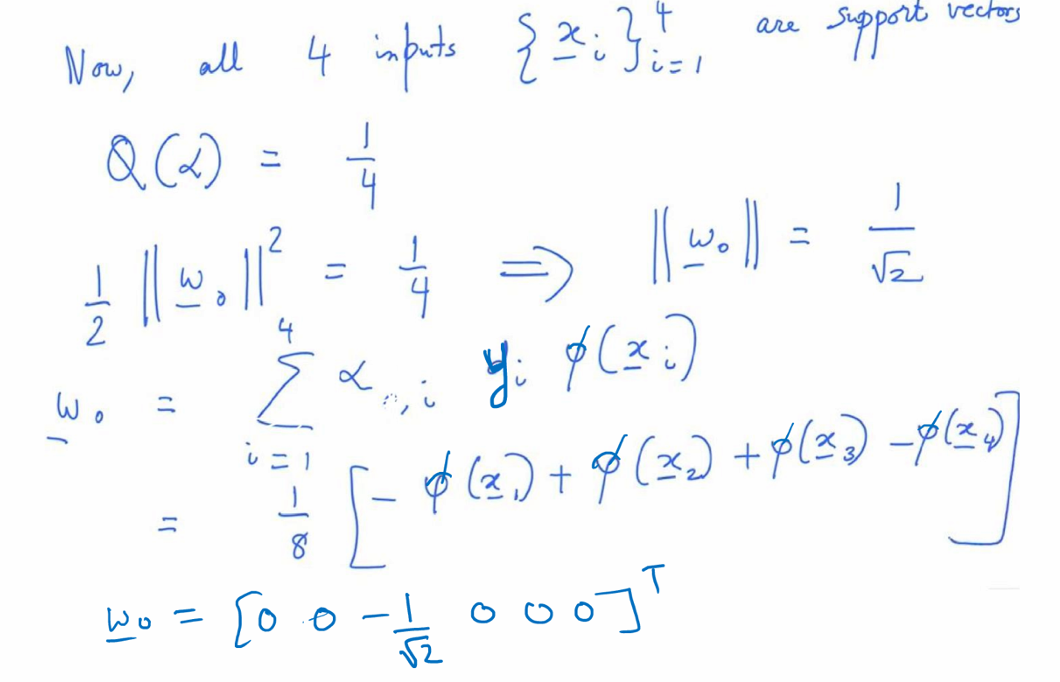 Now, all 4 inputs {x_i}_{i=1}^4 are support vectors
Q(α) = 1/4
1/2 ||w_o||^2 = 1/4 ⇒ ||w_o|| = 1/√2
w_o = ∑_{i=1}^4 α_{o,i} y_i φ(x_i)
= 1/8 [-φ(x_1) + φ(x_2) + φ(x_3) - φ(x_4)]
w_o = [0 0 -1/√2 0 0 0]^T